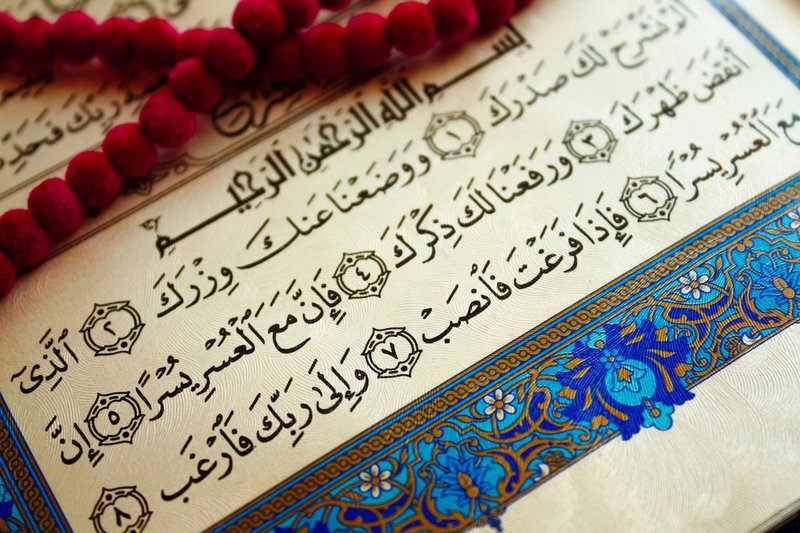 رَبِّكَ فَحَدِّ
بِسْمِ اللَّهِ الرَّحْمَٰنِ الرَّحِيمِ
أَلَمْ نَشْرَحْ لَكَ صَدْرَكَ ١ وَوَضَعْنَا عَنكَ وِزْرَكَ ٢ ٱلَّذِىٓ
أَنقَضَ ظَهْرَكَ ٣ وَرَفَعْنَا لَكَ ذِكْرَكَ ٤ فَإِنَّ مَعَ ٱلْعُسْرِ يُسْرًا ٥ إِنَّ
مَعَ ٱلْعُسْرِ يُسْرًا ٦ فَإِذَا فَرَغْتَ فَٱنصَبْ ٧ وَإِلَىٰ رَبِّكَ فَٱرْغَب ٨